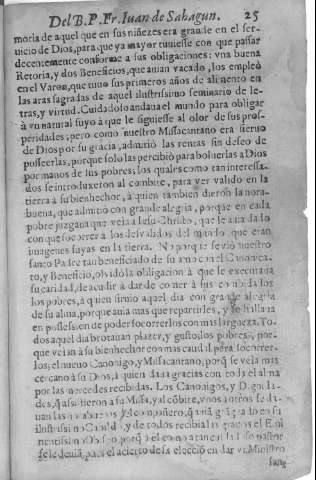 Del B. P. Fr. Iuan de Sahagun. 25
moria de aquel que en sus niñezes era grande en el ser-
uicio de Dios, para que ya mayor tuuiesse con que passar
decentemente conforme a sus obligaciones: vna buena
Retoria, y dos Beneficios, que auian vacado, los empleò
en el Varon, que tuuo sus primeros años de alimento en
las aras sagradas de aquel ilustrissimo seminario de le-
tras, y virtud. Cuidadoso andaua el mundo para obligar
à vn natural suyo à que le siguiesse al olor de sus pros-
peridades; pero como nuestro Missacantano era sieruo
de Dios por su gracia, admitiò las rentas sin deseo de
posseerlas, porque solo las percibiò para boluerlas a Dios
por manos de sus pobres; los quales como tan interessa-
dos se introduxeron al combite, para ver valido en la
tierra à su bienhechor, à quien tambien dieron la nora-
buena, que admitiò con grande alegria, porque en cada
pobre juzgaua que veia a Iesu Christo, que le
con que socorrer à los desvalidos del mundo, que eran
imagenes suyas en la tierra. No porque se viò nuestro
santo Padre tan beneficiado de su amo con el Canonica-
to, y Beneficio, oluidò la obligacion à que le executaua
su caridad, de acudir à dar de comer à sus combidados
los pobres, à quien siruio aquel dia con grande alegria
de su alma, porque auia mas que repartirles, y se hallaua
en possession de poder socorrerlos con mas largueza. To-
dos aquel dia brotauan plazer, y gusto, los pobres, por-
que veian à su bienhechor con mas caudal para socorrer-
los; el nueuo Canonigo, y Missacantano, porq̃ se veia mas
cercano à su Dios, à quien daua gracias con toda el alma
por las mercedes recibidas. Los Canonigos, y Dignida-
des, q̃ assistieron à su Missa, y al cõbite, vnos a otros se da-
uan las y el compañero, q̃ auia grangeado en su
ilustrissimo Cabildo, y de todos recibia las gracias el Emi-
nentissimo Obispo, porq̃ el como a tan pastor
se le deuia, pues el acierto de la eleccion en dar vn Ministro
tang